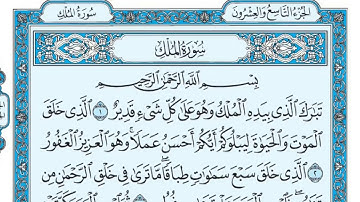 سُورَةُ المُلْكِ
الجُزْءُ التَّاسِعُ وَالعِشْرُونَ
سُورَةُ المُلْكِ
بِسْمِ اللَّهِ الرَّحْمَٰنِ الرَّحِيمِ
تَبَٰرَكَ ٱلَّذِى بِيَدِهِ ٱلْمُلْكُ وَهُوَ عَلَىٰ كُلِّ شَىْءٍ قَدِيرٌ ١ ٱلَّذِى خَلَقَ
ٱلْمَوْتَ وَٱلْحَيَوٰةَ لِيَبْلُوَكُمْ أَيُّكُمْ أَحْسَنُ عَمَلًا ۚ وَهُوَ ٱلْعَزِيزُ ٱلْغَفُورُ
٢ ٱلَّذِى خَلَقَ سَبْعَ سَمَٰوَٰتٍ طِبَاقًا ۖ مَّا تَرَىٰ فِى خَلْقِ ٱلرَّحْمَٰنِ مِن